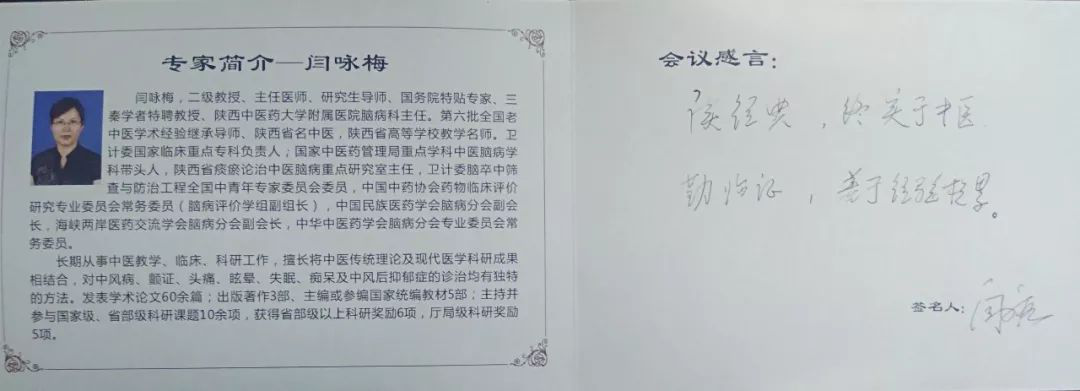 专家简介—闫咏梅
闫咏梅，二级教授、主任医师、研究生导师、国务院特贴专家、三
秦学者特聘教授、陕西中医药大学附属医院脑病科主任。第六批全国老
中医学术经验继承导师、陕西省名中医，陕西省高等学校教学名师。卫
计委国家临床重点专科负责人；国家中医药管理局重点学科中医脑病学
科带头人，陕西省痰瘀论治中医脑病重点研究室主任，卫计委脑卒中筛
查与防治工程全国中青年专家委员会委员，中国中药协会药物临床评价
研究专业委员会常务委员（脑病评价学组副组长），中国民族医药学会脑病分会副会
长，海峡两岸医药交流学会脑病分会副会长，中华中医药学会脑病分会专业委员会常
务委员。
长期从事中医教学、临床、科研工作，擅长将中医传统理论及现代医学科研成果
相结合，对中风病、颤证、头痛、眩晕、失眠、痴呆及中风后抑郁症的诊治均有独特
的方法。发表学术论文60余篇；出版著作3部、主编或参编国家统编教材5部；主持并
参与国家级、省部级科研课题10余项，获得省部级以上科研奖励6项，厅局级科研奖励
5项。
会议感言：
读经典，终实于中医
勤临证，善于经验积累。
签名人：